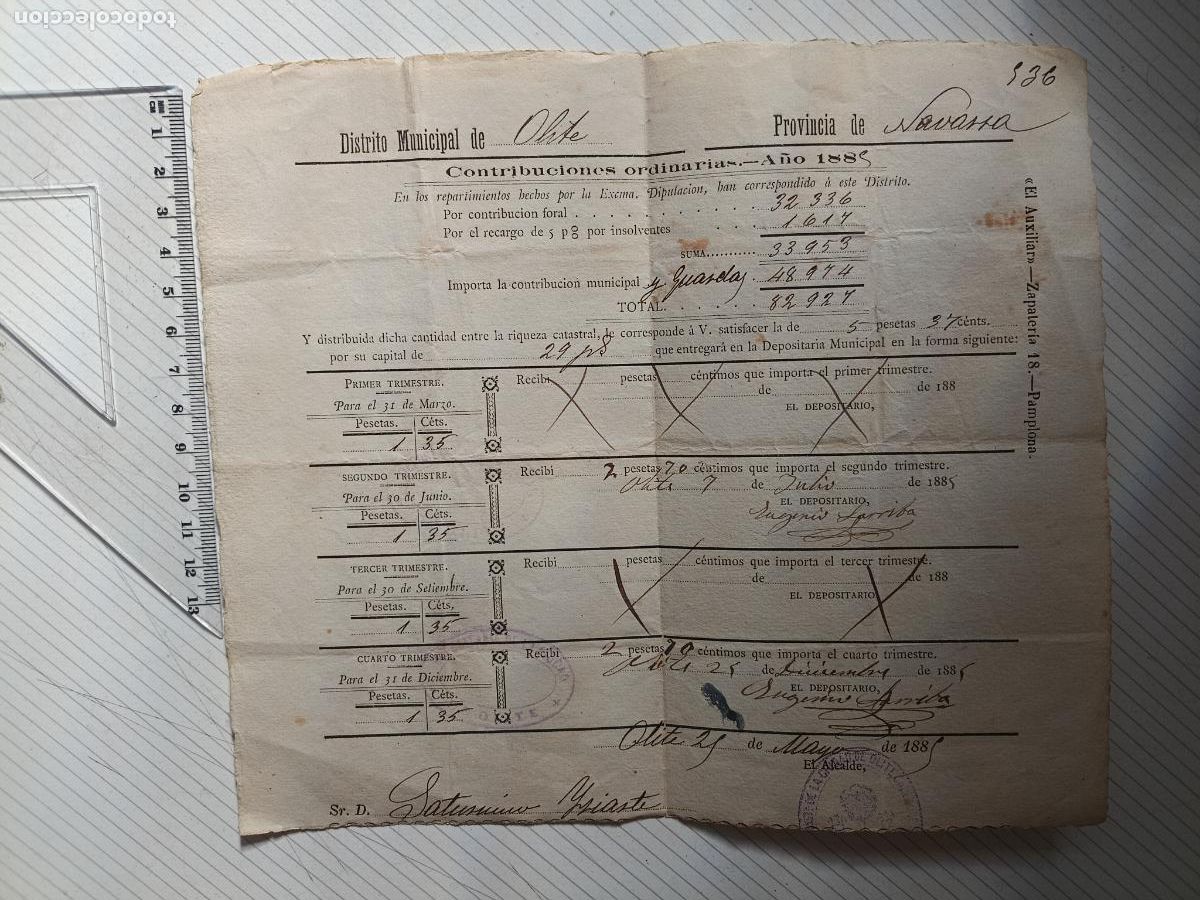 todocoleccion
536
Distrito Municipal de Olite Provincia de Navarra
Contribuciones ordinarias.—Año 1885
En los repartimientos hechos por la Excma. Diputacion, han correspondido á este Distrito.
Por contribucion foral . . . . . . . . . . 32 336
Por el recargo de 5 p% por insolventes . . . 1 617
SUMA.......... 33 953
Importa la contribucion municipal y Guardas . 48 974
TOTAL. . . . . . 82 927
Y distribuida dicha cantidad entre la riqueza catastral, le corresponde á V. satisfacer la de 5 pesetas 37 cénts.
por su capital de 29 ps que entregará en la Depositaria Municipal en la forma siguiente:
PRIMER TRIMESTRE.
Para el 31 de Marzo.
Pesetas. Céts.
1 35
Recibí pesetas céntimos que importa el primer trimestre.
de de 188
EL DEPOSITARIO,
SEGUNDO TRIMESTRE.
Para el 30 de Junio.
Pesetas. Céts.
1 35
Recibí 2 pesetas 70 céntimos que importa el segundo trimestre.
Olite 7 de Julio de 1885
EL DEPOSITARIO,
Eugenio Arriba
TERCER TRIMESTRE.
Para el 30 de Setiembre.
Pesetas. Céts,
1 35
Recibí pesetas céntimos que importa el tercer trimestre.
de de 188
EL DEPOSITARIO
CUARTO TRIMESTRE.
Para el 31 de Diciembre.
Pesetas. Céts.
1 35
Recibí 2 pesetas 70 céntimos que importa el cuarto trimestre.
Olite 25 de Diciembre de 1885
EL DEPOSITARIO,
Eugenio Arriba
OLITE
Olite 25 de Mayo de 1885
El Alcalde,
Sr. D. Saturnino Yriarte
«El Auxiliar»—Zapatería 18.—Pamplona.
DE LA CIUDAD DE OLITE
CM 1 2 3 4 5 6 7 8 9 10 11 12 13